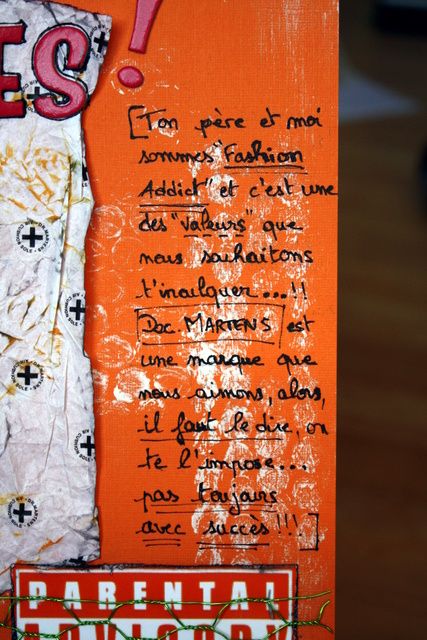 ES !
[Ton père et moi
sommes "Fashion
Addict" et c'est une
des "valeurs" que
nous souhaitons
t'inculquer...!!
Doc. MARTENS est
une marque que
nous aimons, alors,
il faut le dire, on
te l'impose...
pas toujours
avec succès!!!.]
PARENTAL
ADVISORY